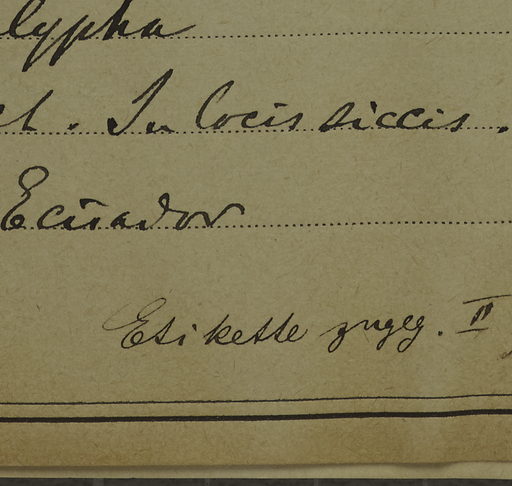 lypha
ct. In locis siccis.
Ecuador
Etikette zugeg. II